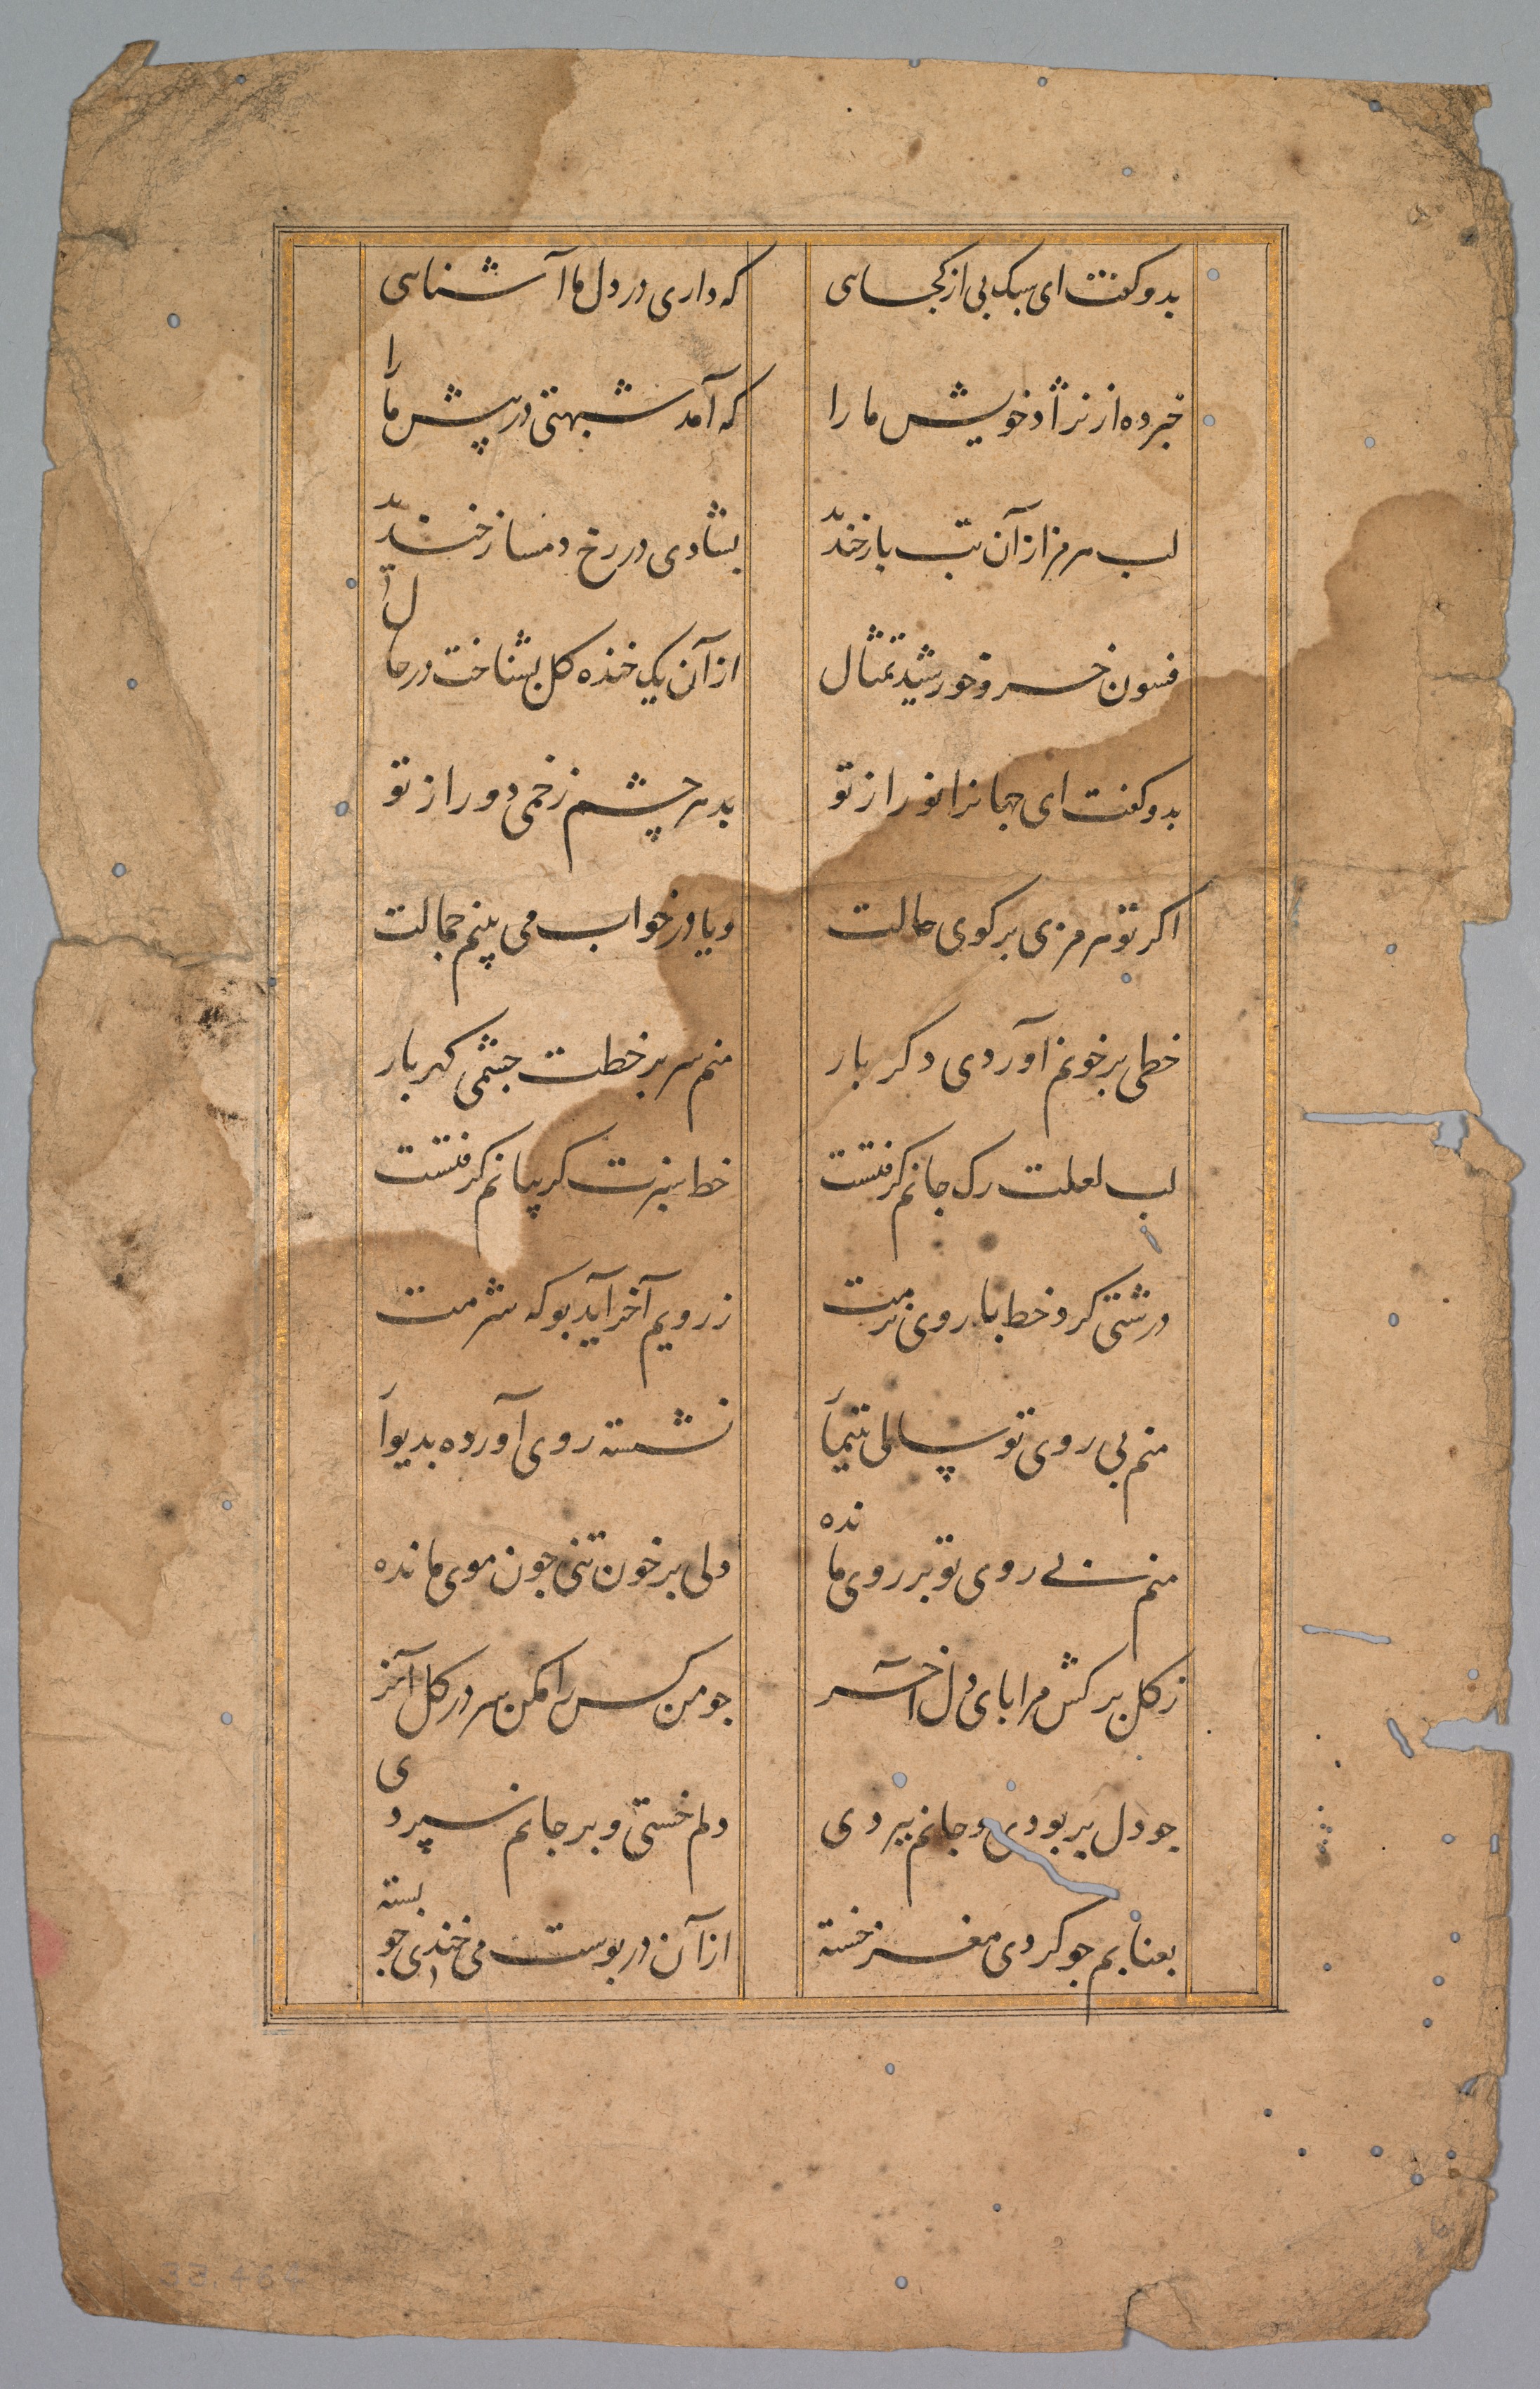 بدو کفت ای سبک پی از کجایی که داری در دل ما آشنایی
خبر ده از نژاد خویش ما را که آمد شبهتی در پیش ما را
لب هرمز از آن تب باز خندید بشادی در رخ دمساز خندید
فسون خسرو خورشید تمثال از آن یک خنده کل بشناخت در حال
بدو کفت ای جهانرا نور از تو بد هر چشم زخمی دور از تو
اکر تو هرمزی برکوی حالت و یا در خواب می بینم جمالت
خطی بر خونم آوردی دکر بار منم سر بر خطت چشمی کهر بار
لب لعلت رک جانم کرفتست خط سبزت کریبانم کرفتست
درشتی کرد خط با روی نرمت ز رویم آخر آید بو که شرمت
منم بی روی تو سالی تیمار نشسته روی آورده بدیوار
منم بی روی تو بر روی مانده دلی بر خون تنی جون موی مانده
ز کل برکش مرا بای دل آخر جو من کس را مکن سر در کل آخر
جو دل بر بودی و جانم ببردی دلم خستی و بر جانم سپردی
بعنابم جو کردی مغز خسته از آن در بوست می خندی جو بسته
33.464